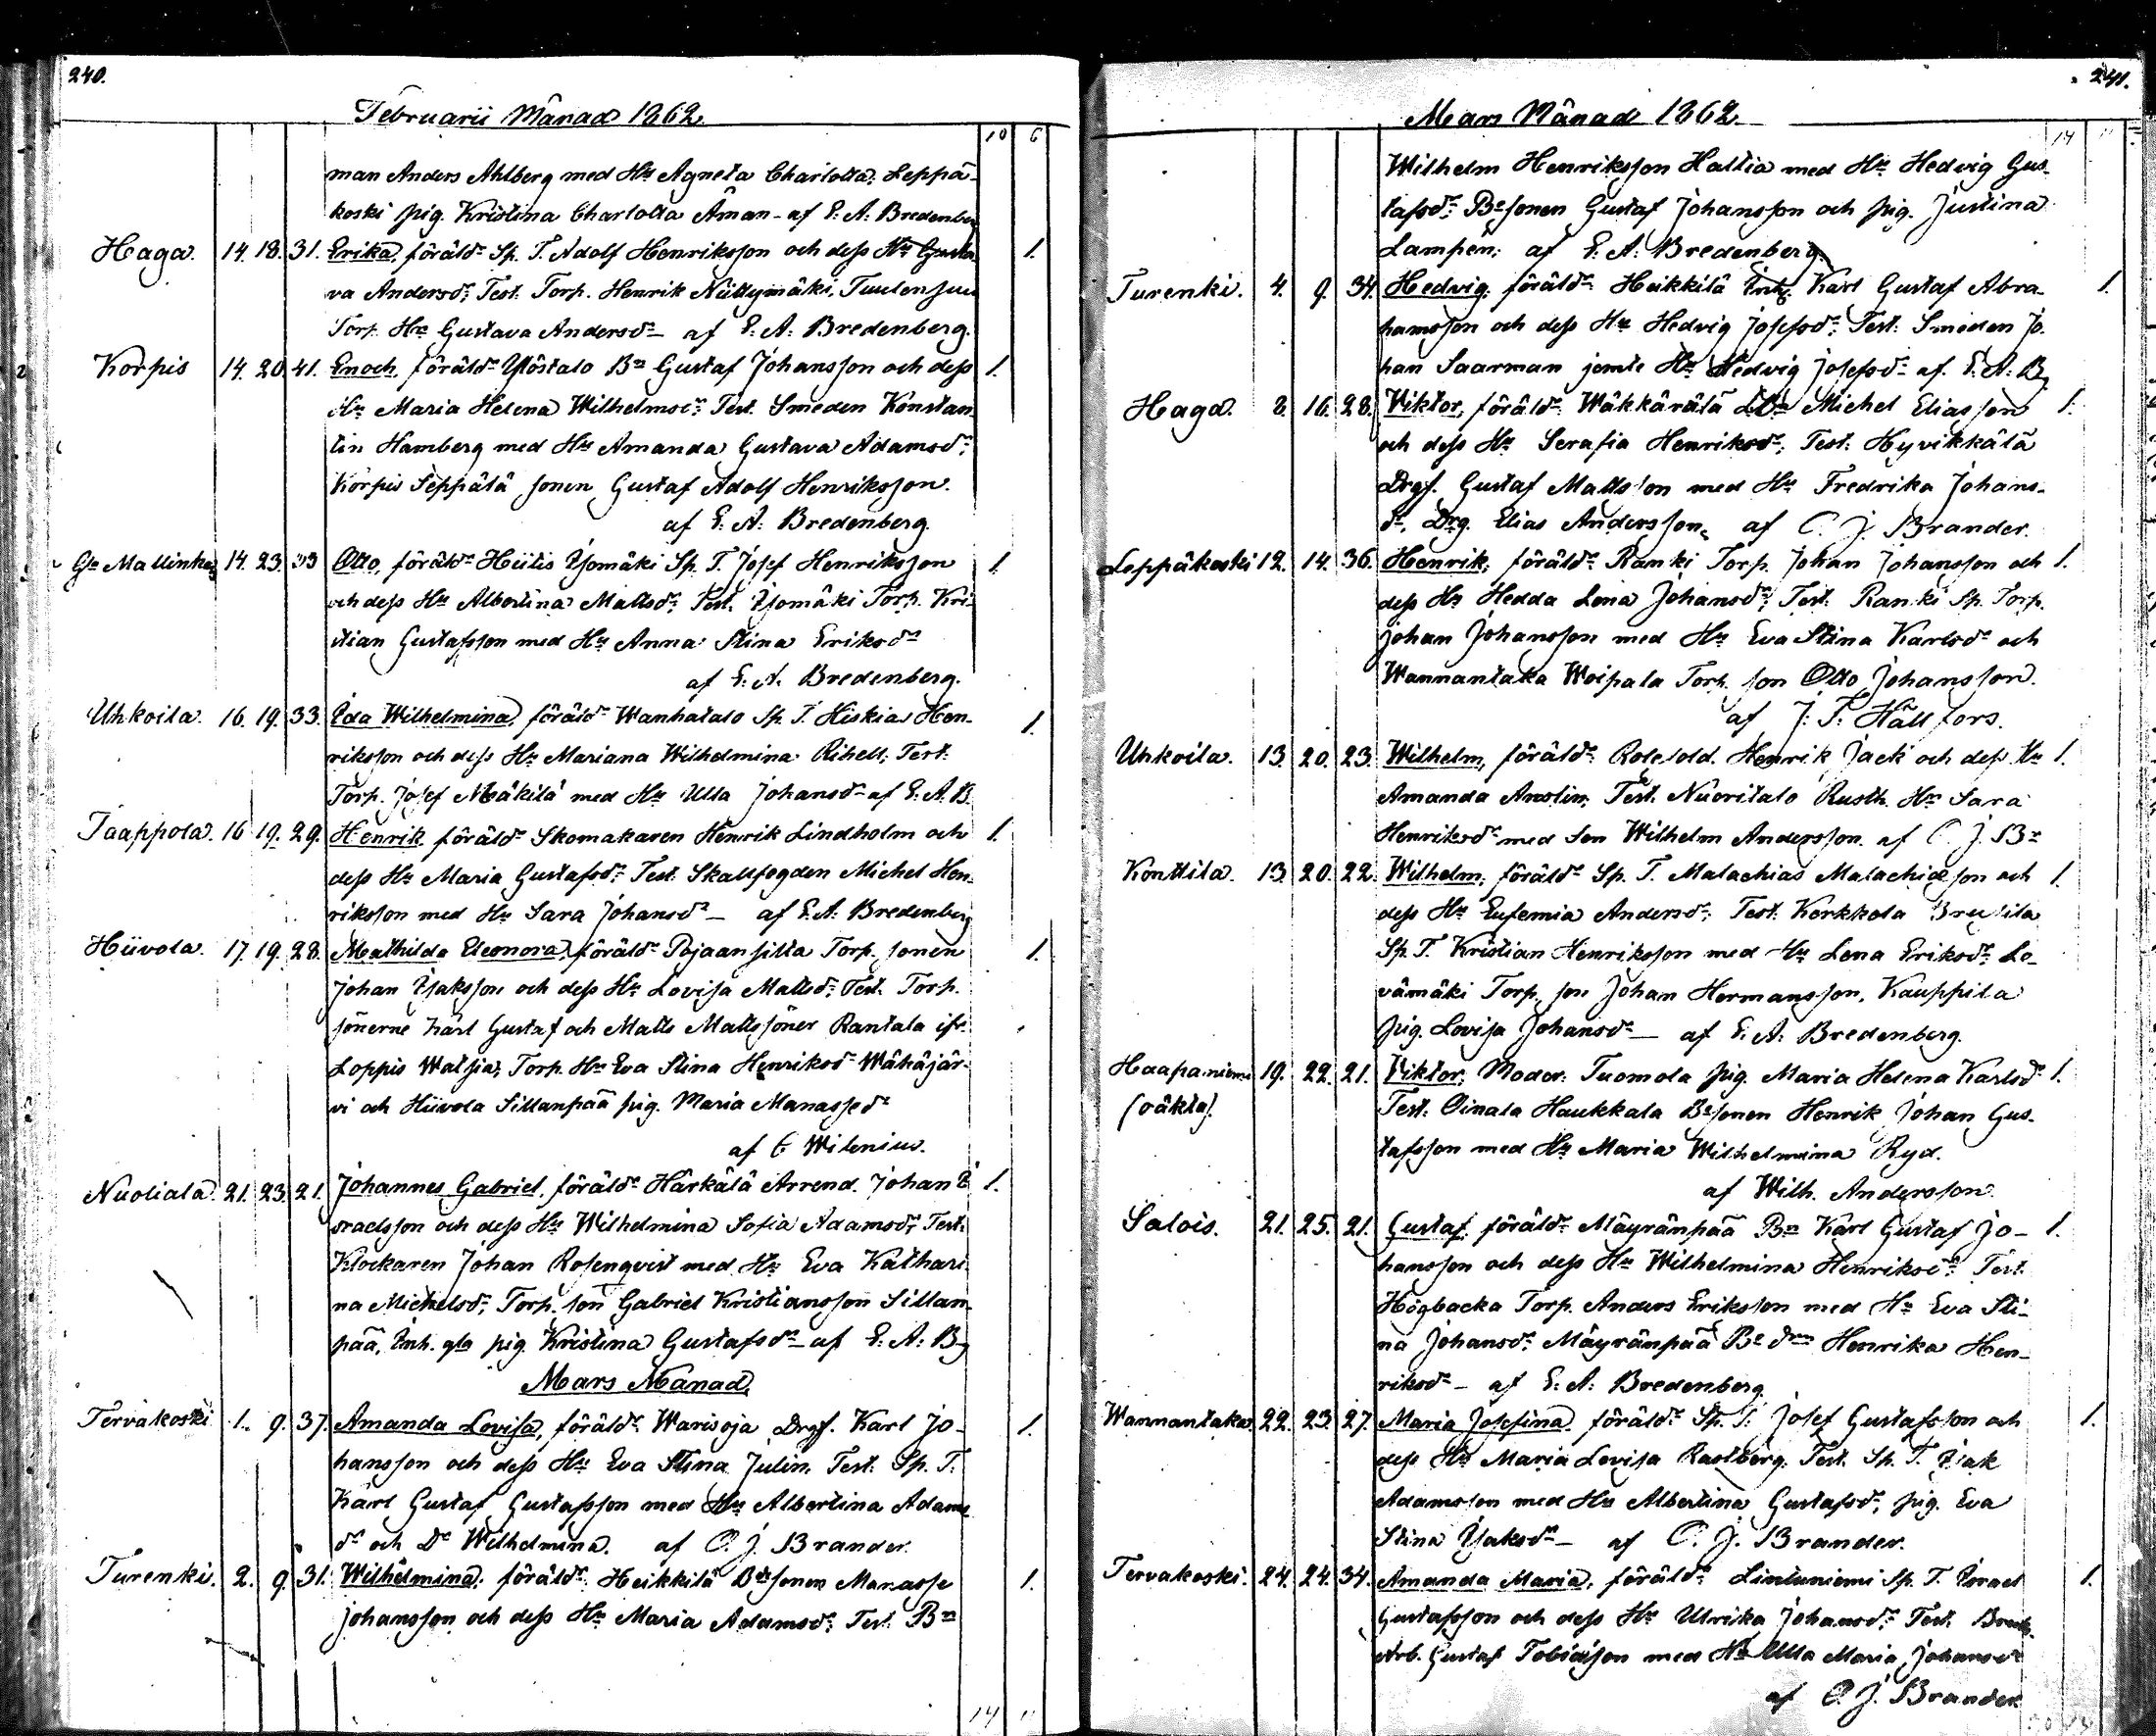 240.
Februarii Månad 1862.
10 6
man Anders Ahlberg med Hu Agneta Charlotta, Leppä-
koski pig. Kristina Charlotta Åman - af E. A. Bredenberg
Haga. 14. 18. 31. Erika, föräldr Sp. T. Adolf Henriksson och dess Hu Gusta- 1.
va Andersdr, Test. Torp. Henrik Niittymäki, Tuulensuu
Torp. Hu Gustava Andersdr - af E. A. Bredenberg.
Korpis 14. 20. 41. Enoch, föräldr Ylöstalo Bn Gustaf Johansson och dess 1.
Hu Maria Helena Wilhelmsdr Test. Smeden Konstan-
tin Hamberg med Hu Amanda Gustava Adamsdr,
Korpis Seppälä sonen Gustaf Adolf Henriksson.
af E. A. Bredenberg.
Ga Mallinkas 14. 23. 33 Otto, föräldr Hiitis Isomäki Sp. T. Josef Henriksson 1.
och dess Hu Albertina Mattsdr, Test. Isomäki Torp. Kri-
stian Gustafsson med Hu Anna Stina Eriksdr
af E. A. Bredenberg.
Uhkoila. 16. 19. 33. Ida Wilhelmina, föräldr Wanhatalo Sp. T. Hiskias Hen- 1.
riksson och dess Hu Mariana Wilhelmina Rihell; Test.
Torp. Josef Mäkilä med Hu Ulla Johansdr af E. A. B.
Taappola. 16 19. 29. Henrik, föräldr Skomakaren Henrik Lindholm och 1.
dess Hu Maria Gustafsdr, Test. Skallfogden Michel Hen-
riksson med Hu Sara Johansdr - af E. A. Bredenberg
Hiivola. 17. 19. 28. Mathilda Eleonora, föräldr Pojaansilta Torp. sonen 1.
Johan Isaksson och dess Hu Lovisa Mattsdr, Test. Torp.
sönerne Karl Gustaf och Matts Mattssöner Rantala ifr.
Loppis Watsia, Torp. Hu Eva Stina Henriksdr Wähäjär-
vi och Hiivola Sillanpää pig. Maria Manassedr
af G Wilenius.
Nuoliala. 21. 23. 21. Johannes Gabriel, föräldr Härkälä Arrend. Johan I- 1.
sraelsson och dess Hu Wilhelmina Sofia Adamsdr, Test.
Klockaren Johan Rosenqvist med Hu Eva Kathari-
na Michelsdr, Torp. son Gabriel Kristiansson Sillan-
pää, Inh. pig. Kristina Gustafsdr - af E. A. Bg
Mars Månad.
Tervakoski 1. 9. 37. Amanda Lovisa, föräldr Warisoja Drgf. Karl Jo- 1.
hansson och dess Hu Eva Stina Julin, Test. Sp. T.
Karl Gustaf Gustafsson med Hu Albertina Adams-
dr och Do Wilhelmina. af O. J. Brander.
Turenki. 2. 9. 31. Wilhelmina, föräldr Heikkilä Bdesonen Manasse 1.
Johansson och dess Hu Maria Adamsdr, Test. Bn
14 11
241.
Mars Månad 1862.
14 11
Wilhelm Henriksson Hattia med Hu Hedvig Gus-
tafsdr, Besonen Gustaf Johansson och pig. Justina
Lampen; af E. A. Bredenberg.
Turenki. 4. 9. 34. Hedvig, föräldr Heikkilä Inh. Karl Gustaf Abra- 1.
hamsson och dess Hu Hedvig Josefsdr, Test. Smeden Jo-
han Saarman jemte Hu Hedvig Josefsdr af E. A. Bg
Haga. 8. 16. 28. Viktor, föräldr Wäkkärälä Michel Eliasson 1.
och dess Hu Serafia Henriksdr, Test. Hyvikkälä
Drgf. Gustaf Mattsson med Hu Fredrika Johans-
dr, Drg. Elias Andersson, af O. J. Brander.
Leppäkoski 12. 14. 36. Henrik, föräldr Ranki Torp. Johan Johansson och 1.
dess Hu Hedda Lena Johansdr, Test. Ranki Sp. Torp.
Johan Johansson med Hu Eva Stina Karlsdr och
Wannantaka Woipala Torp. son Otto Johansson.
af J. F. Hällfors.
Uhkoila. 13. 20. 23. Wilhelm, föräldr Rotesold. Henrik Jack och dess Hu 1.
Amanda Anolin, Test. Nuoritalo Rusth. Hu Sara
Henriksdr med son Wilhelm Andersson. af O. J. Br
Konttila. 13. 20. 22. Wilhelm, föräldr Sp. T. Malachias Malachiasson och 1.
dess Hu Eufemia Andersdr, Test. Kerkkola
Sp. T. Kristian Henriksson med Hu Lena Eriksdr Le-
vämäki Torp. son Johan Hermansson, Kauppila
pig. Lovisa Johansdr - af E. A. Bredenberg.
Haapaniemi 19. 22. 21. Viktor, Moder: Tuomola pig. Maria Helena Karlsdr 1.
(oäkta). Test. Oinala Haukkala Besonen Henrik Johan Gus-
tafsson med Hu Maria Wilhelmina Ryd.
af Wilh. Andersson.
Salois. 21. 25. 21. Gustaf, föräldr Mäyränpää Bn Karl Gustaf Jo- 1.
hansson och dess Hu Wilhelmina Henriksdr, Test.
Högbacka Torp. Anders Eriksson med Hu Eva Sti-
na Johansdr Mäyränpää Be drn Henrika Hen-
riksdr - af E. A. Bredenberg.
Wannantaka. 22. 23. 27. Maria Josefina, föräldr Sp. T. Josef Gustafsson och 1.
dess Hu Maria Lovisa Rastberg, Test. Sp. T. Isak
Adamsson med Hu Albertina Gustafsdr, pig. Eva
Stina Isaksdr - af O. J. Brander.
Tervakoski. 24. 24. 34. Amanda Maria, föräldr Lintuniemi Sp. T. Israel 1.
Gustafsson och dess Hu Ulrika Johansdr, Test.
Arb. Gustaf Tobiasson med Hu Ulla Maria Johansdr
af O. J. Brander.